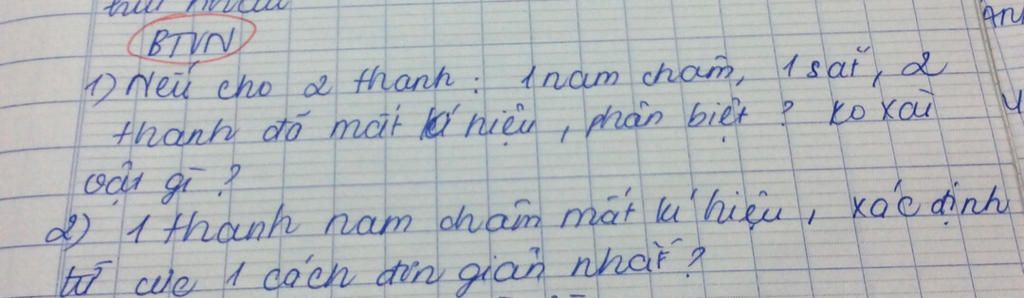 BTVN
1) Nếu cho 2 thanh: 1 nam châm, 1 sắt, 2
thanh đó mất kí hiệu, phân biệt? ko xài
vật gì?
2) 1 thanh nam châm mất kí hiệu, xác định
từ cực 1 cách đơn giản nhất?